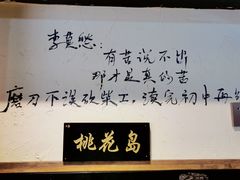 李莫愁：
有苦说不出
却才是真的苦
磨刀不误砍柴工，读完初中再
桃花岛